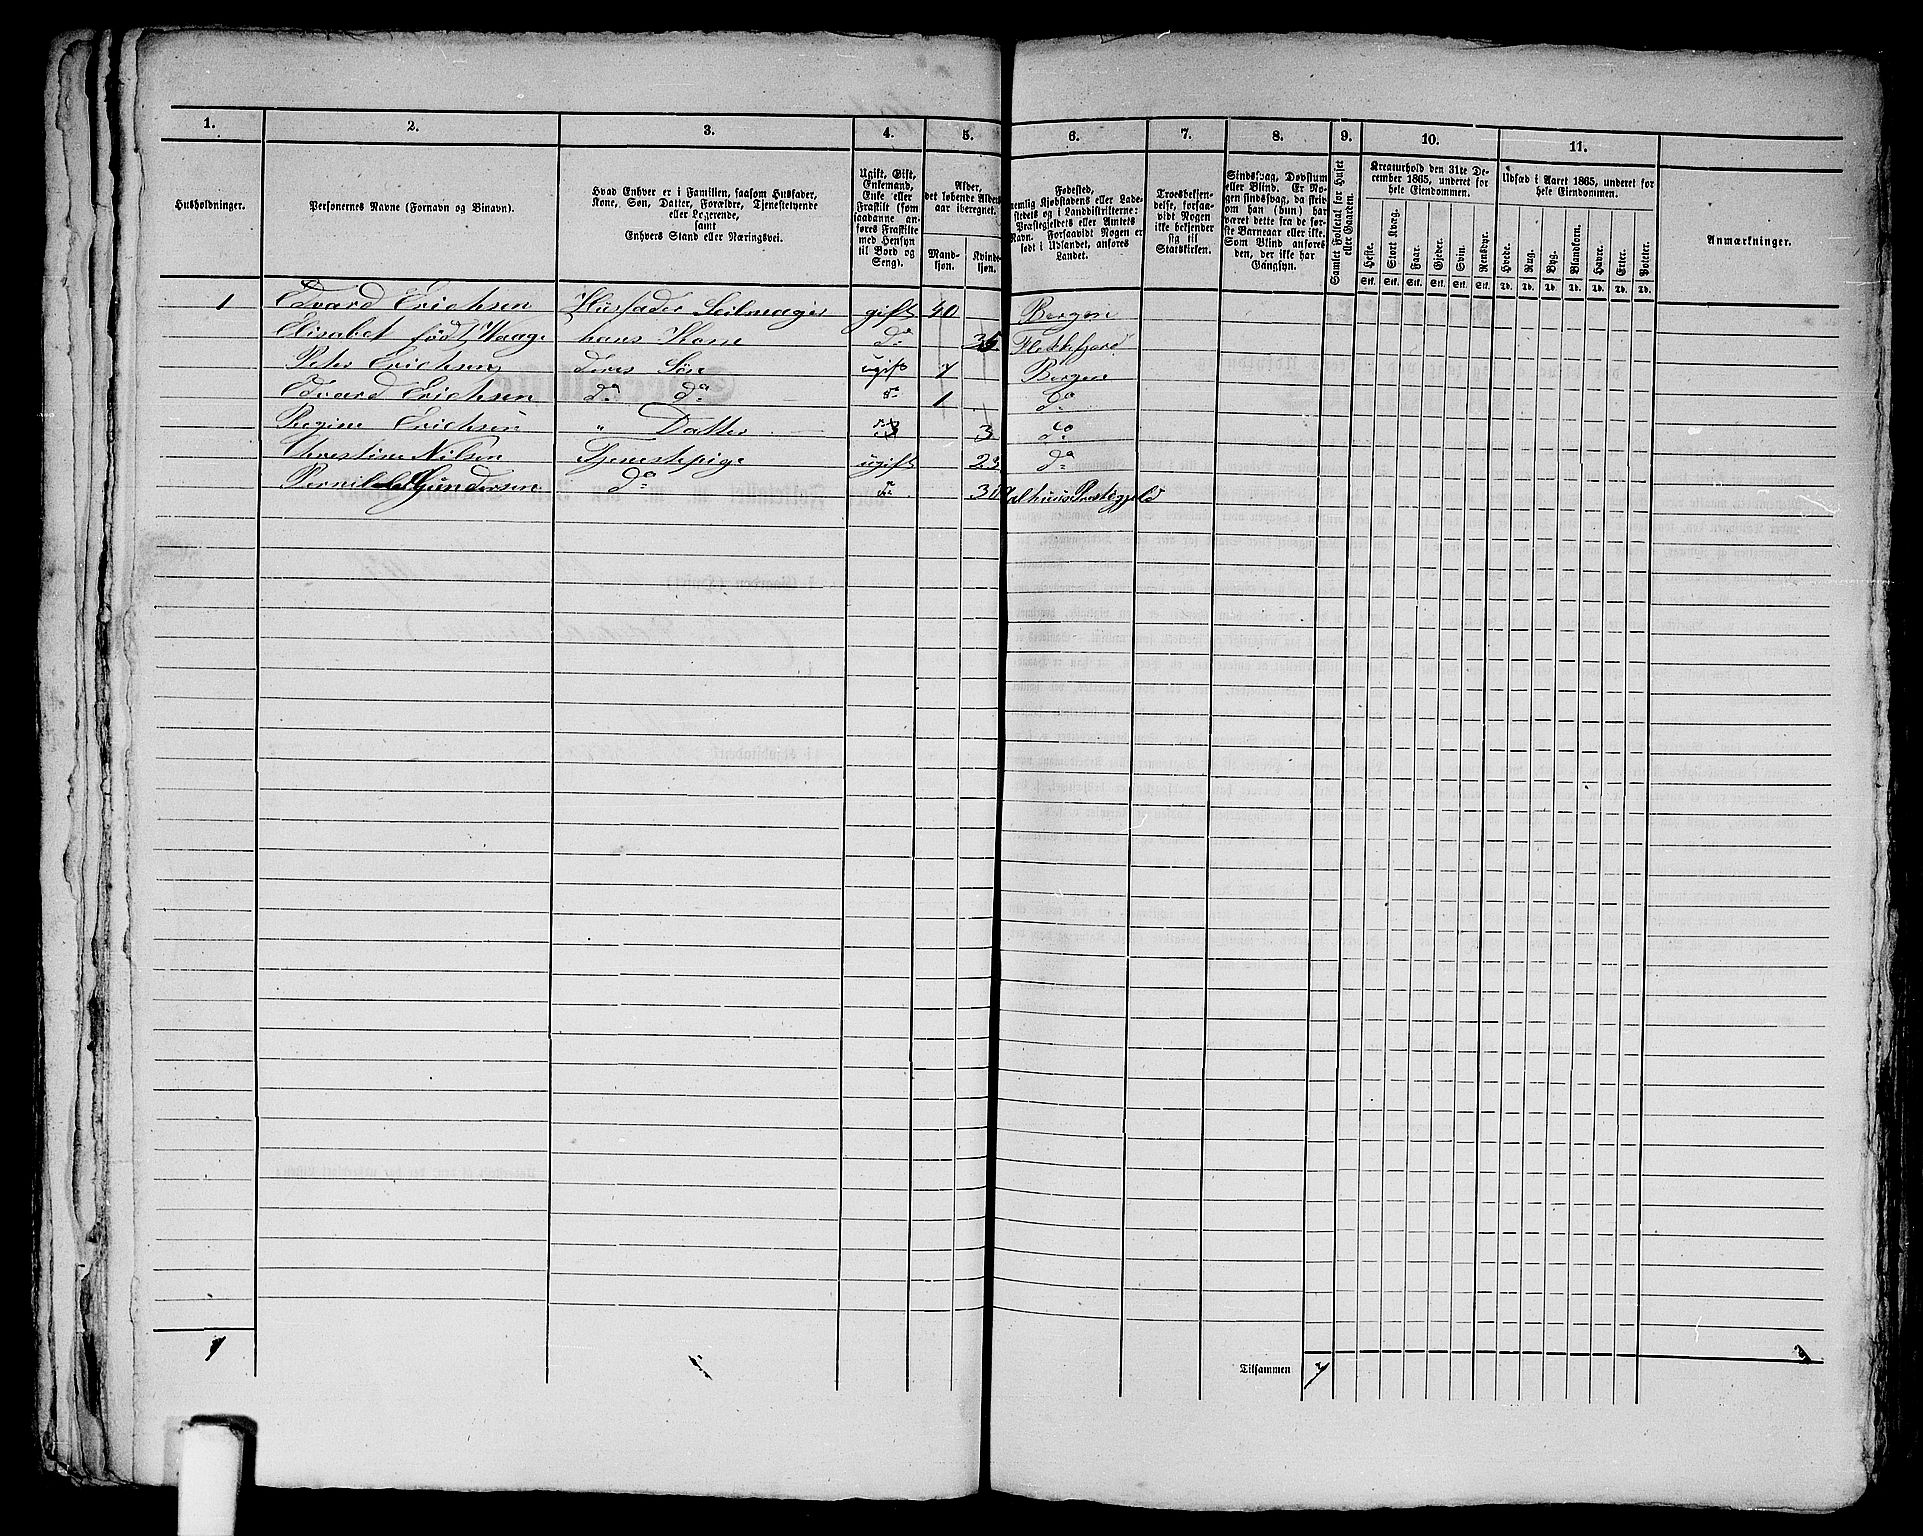 1. 2. 3. 4. 5. 6. 7. 8. 9. 10. 11.
Husholdninger.
Personernes Navne (Fornavn og Binavn).
Hvad Enhver er i Familien, saasom Husfader,
Kone, Søn, Datter, Forældre, Tjenestetyende
eller Logerende,
samt
Enhvers Stand eller Næringsvei.
Ugift, Gift,
Enkemand,
Enke eller
Fraskilt (som
saadanne an-
føres Fraskilte
med Hensyn
til Bord og
Seng).
Alder,
det løbende Alders-
aar iberegnet.
Mand-
kjøn.
Kvinde-
kjøn.
Fødested,
nemlig Kjøbstadens eller Lade-
stedets og i Landdistrikterne:
Præstegjeldets eller Amtets
Navn. Forsaavidt Nogen er
født i Udlandet, anføres
Landet.
Troesbekjen-
delse, forsaa-
vidt Nogen
ikke bekjender
sig til
Statskirken.
Sindssvag, Døvstum
eller Blind. Er No-
gen sindssvag, da skriv
om han (hun) har
været dette fra de før-
ste Barneaar eller ikke.
Som Blind anføres
den, der ikke har
Gangsyn.
Samlet Folketal for Huset
eller Gaarden.
Kreaturhold den 31te De-
cember 1865, underet for
hele Eiendommen.
Heste. Stort Kvæg. Faar. Gjeder. Svin. Rensdyr.
Stk. Stk. Stk. Stk. Stk. Stk.
Udsæd i Aaret 1865, underet for
hele Eiendommen.
Hvede. Rug. Byg. Blandkorn. Havre. Erter. Poteter.
Td. Td. Td. Td. Td. Td. Td.
Anmærkninger.
1 Edvard Erichsen Husfader Seilmager gift 40 Bergen
Elisabet født Haage hans Kone do 35 Flekkefjord
Peter Erichsen deres Søn ugift 7 Bergen
Edvard Erichsen do do do 1 do
Regine Erichsen " Datter do 3 do
Christine Nilsen Tjenestepige ugift 23 do
Pernille Gundersen do do Præstegjeld
1
Tilsammen 7